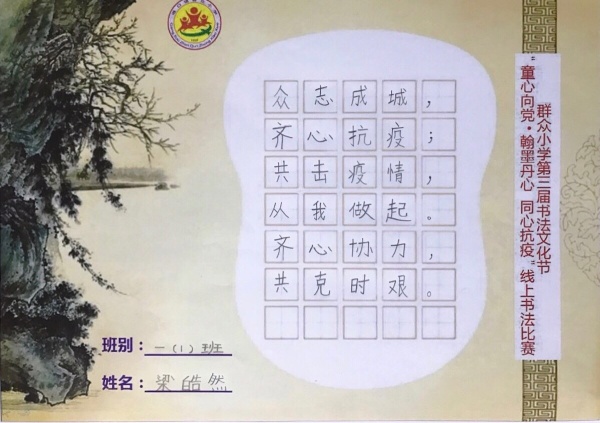 众志成城，
齐心抗疫；
共击疫情，
从我做起。
齐心协力，
共克时艰。
班别：一（1）班
姓名：梁皓然
群众小学第三届书法文化节
“童心向党·翰墨丹心 同心抗疫”线上书法比赛